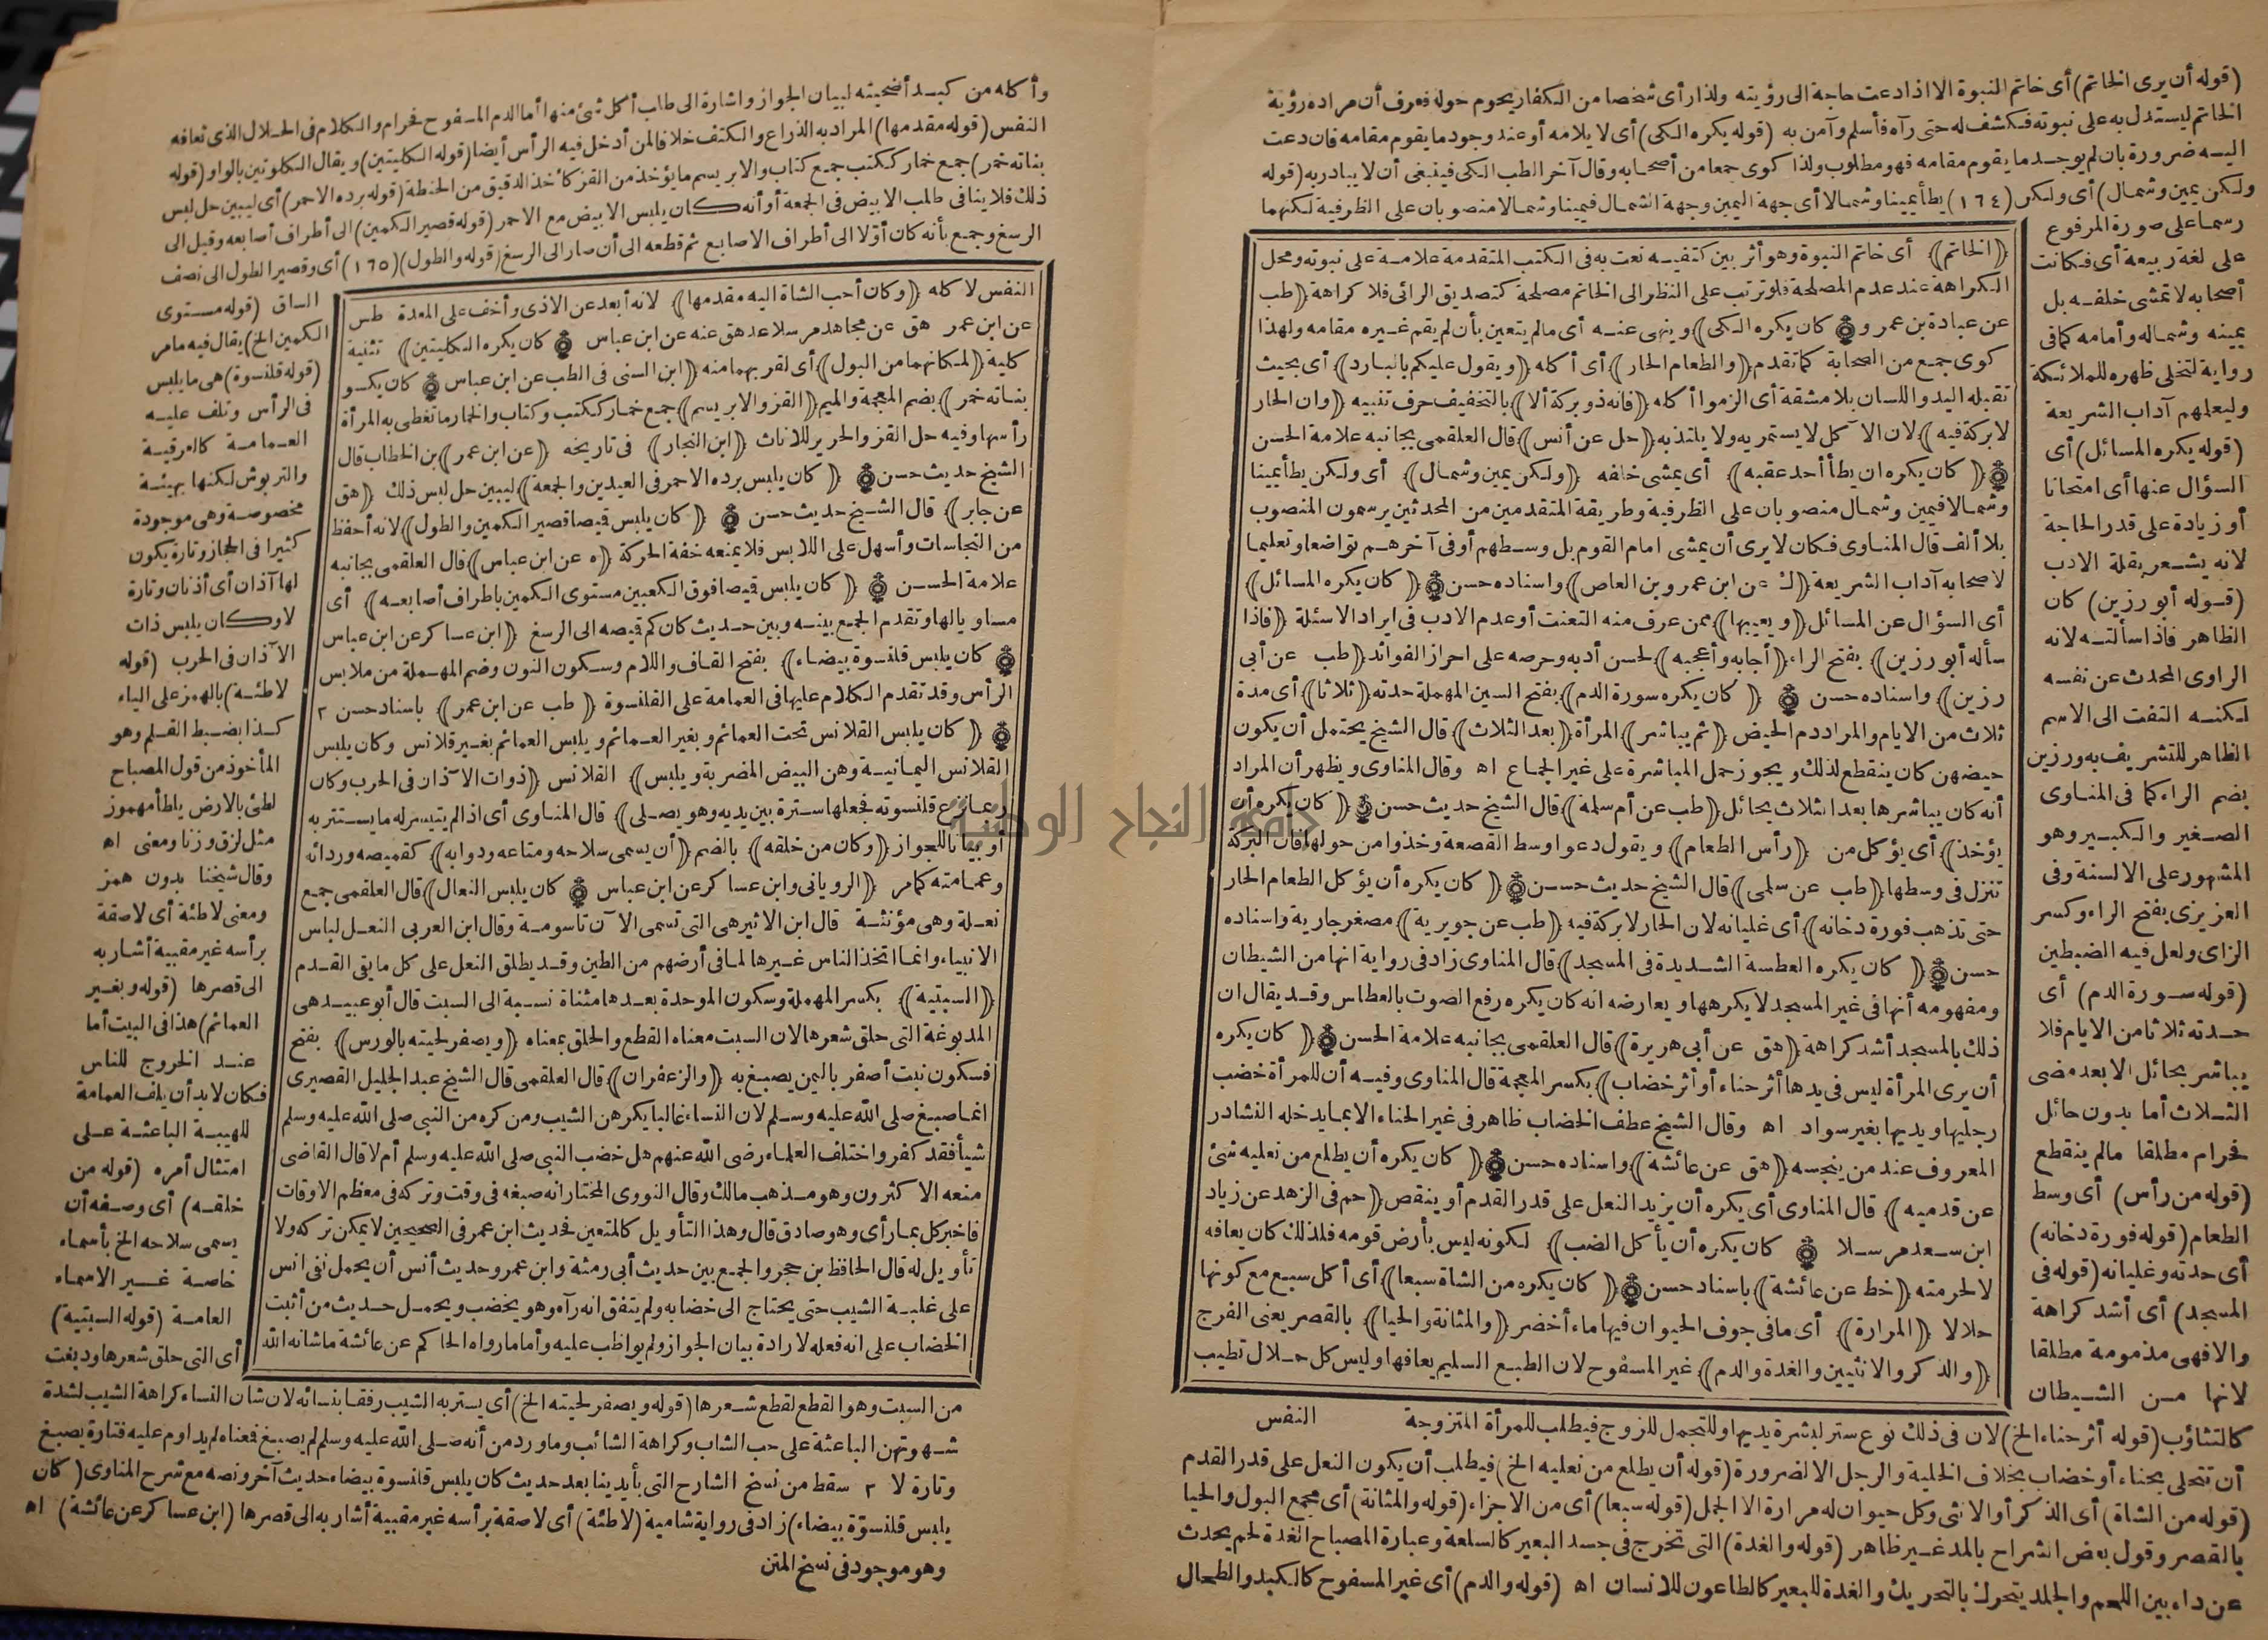 (قوله أن يرى الخاتم) أى خاتم النبوة الا اذا دعت حاجة الى رؤيته ولذا رأى شخصا من الكفار يحوم حوله فعرف أن مراده رؤية
الخاتم ليستدل به على نبوته فكشف له حتى رآه فأسلم وآمن به (قوله يكره الكى) أى لا يلامه أو عند وجود ما يقوم مقامه فان دعت
اليه ضرورة بان لم يوجد ما يقوم مقامه فهو مطلوب ولذا كوى جمعا من أصحابه وقال آخر الطب الكى فينبغى أن لا يبادر به (قوله
ولكن يمين وشمال) أى ولكن (١٦٤) يطأ يمينا وشمالا أى جهة اليمين وجهة الشمال فيمينا وشمالا منصوبان على الظرفية لكنهما
رسما على صورة المرفوع
على لغة ربيعة أى فكانت
أصحابه لا تمشى خلفه بل
يمينه وشماله وأمامه كما فى
رواية لتخلى ظهره للملائكة
وليعلمهم آداب الشريعة
(قوله يكره المسائل) أى
السؤال عنها أى امتحانا
أو زيادة على قدر الحاجة
لانه يشعر بقلة الادب
(قوله أبو رزين) كان
الظاهر فاذا سألته لانه
الراوى المحدث عن نفسه
لكنه التفت الى الاسم
الظاهر للتشريف به ورزين
بضم الراء كما فى المناوى
الصغير والكبير وهو
المشهور على الالسنة وفى
العزيزى بفتح الراء وكسر
الزاى ولعل فيه الضبطين
(قوله سورة الدم) أى
حدته ثلاثا من الايام فلا
يباشر بحائل الا بعد مضى
الثلاث أما بدون حائل
فحرام مطلقا مالم ينقطع
(قوله من رأس) أى وسط
الطعام (قوله فورة دخانه)
أى حدته وغليانه (قوله فى
المسجد) أى أشد كراهة
والا فهى مذمومة مطلقا
لانها من الشيطان
﴿الخاتم﴾ أى خاتم النبوة وهو أثر بين كتفيه نعت به فى الكتب المتقدمة علامة على نبوته ومحل
الكراهة عند عدم المصلحة فلو ترتب على النظر الى الخاتم مصلحة كتصديق الرائى فلا كراهة ﴿طب
عن عبادة بن عمرو ۞ كان يكره الكى﴾ وينهى عنه أى مالم يتعين بأن لم يقم غيره مقامه ولهذا
كوى جمع من الصحابة كما تقدم ﴿والطعام الحار﴾ أى أكله ﴿ويقول عليكم بالبارد﴾ أى بحيث
تقبله اليد واللسان بلا مشقة أى الزموا أكله ﴿فانه ذو بركة ألا﴾ بالتخفيف حرف تنبيه ﴿وان الحار
لا بركة فيه﴾ لان الآكل لا يستمريه ولا يلتذ به ﴿حل عن أنس﴾ قال العلقمى بجانبه علامة الحسن
۞ ﴿كان يكره ان يطأ أحد عقبه﴾ أى يمشى خلفه ﴿ولكن يمين وشمال﴾ أى ولكن يطأ يمينا
وشمالا فيمين وشمال منصوبان على الظرفية وطريقة المتقدمين من المحدثين يرسمون المنصوب
بلا ألف قال المناوى فكان لا يرى أن يمشى امام القوم بل وسطهم أو فى آخرهم تواضعا وتعليما
لاصحابه آداب الشريعة ﴿ك عن ابن عمرو بن العاص﴾ واسناده حسن ۞ ﴿كان يكره المسائل﴾
أى السؤال عن المسائل ﴿ويعيبها﴾ ممن عرف منه التعنت أو عدم الادب فى ايراد الاسئلة ﴿فاذا
سأله أبو رزين﴾ بفتح الراء ﴿أجابه وأعجبه﴾ لحسن أدبه وحرصه على احراز الفوائد ﴿طب عن أبى
رزين﴾ واسناده حسن ۞ ﴿كان يكره سورة الدم﴾ بفتح السين المهملة حدته ﴿ثلاثا﴾ أى مدة
ثلاث من الايام والمراد دم الحيض ﴿ثم يباشر﴾ المرأة ﴿بعد الثلاث﴾ قال الشيخ يحتمل أن يكون
حيضهن كان ينقطع لذلك ويجوز حمل المباشرة على غير الجماع اه وقال المناوى ويظهر أن المراد
أنه كان يباشرها بعد الثلاث بحائل ﴿طب عن أم سلمة﴾ قال الشيخ حديث حسن ۞ ﴿كان يكره أن
يؤخذ﴾ أى يؤكل من ﴿رأس الطعام﴾ ويقول دعوا وسط القصعة وخذوا من حولها فان البركة
تنزل فى وسطها ﴿طب عن سلمى﴾ قال الشيخ حديث حسن ۞ ﴿كان يكره أن يؤكل الطعام الحار
حتى تذهب فورة دخانه﴾ أى غليانه لان الحار لا بركة فيه ﴿طب عن جويرية﴾ مصغر جارية واسناده
حسن ۞ ﴿كان يكره العطسة الشديدة فى المسجد﴾ قال المناوى زاد فى رواية انها من الشيطان
ومفهومه أنها فى غير المسجد لا يكرهها ويعارضه انه كان يكره رفع الصوت بالعطاس وقد يقال ان
ذلك بالمسجد أشد كراهة ﴿هق عن أبى هريرة﴾ قال العلقمى بجانبه علامة الحسن ۞ ﴿كان يكره
أن يرى المرأة ليس فى يدها أثر حناء أو أثر خضاب﴾ بكسر المعجمة قال المناوى وفيه أن للمرأة خضب
رجليها ويديها بغير سواد اه وقال الشيخ عطف الخضاب ظاهر فى غير الحناء الا بما يدخله النشادر
المعروف عند من ينجسه ﴿هق عن عائشة﴾ واسناده حسن ۞ ﴿كان يكره أن يطلع من نعليه شئ
عن قدميه﴾ قال المناوى أى يكره أن يزيد النعل على قدر القدم أو ينقص ﴿حم فى الزهد عن زياد
ابن سعد مرسلا ۞ كان يكره أن يأكل الضب﴾ لكونه ليس بأرض قومه فلذلك كان يعافه
لا لحرمته ﴿خط عن عائشة﴾ باسناد حسن ۞ ﴿كان يكره من الشاة سبعا﴾ أى أكل سبع مع كونها
حلالا ﴿المرارة﴾ أى ما فى جوف الحيوان فيها ماء أخضر ﴿والمثانة والحيا﴾ بالقصر يعنى الفرج
﴿والذكر والانثيين والغدة والدم﴾ غير المسفوح لان الطبع السليم يعافها وليس كل حلال تطيب
النفس
كالتثاؤب (قوله أثر حناء الخ) لان فى ذلك نوع ستر لبشرة يديها وللتجمل للزوج فيطلب للمرأة المتزوجة
أن تتحلى بحناء أو خضاب بخلاف الخلية والرجل الا لضرورة (قوله أن يطلع من نعليه الخ) فيطلب أن يكون النعل على قدر القدم
(قوله من الشاة) أى الذكر أو الانثى وكل حيوان له مرارة الا الجمل (قوله سبعا) أى من الاجزاء (قوله والمثانة) أى مجمع البول والحيا
بالقصر وقول بعض الشراح بالمد غير ظاهر (قوله والغدة) التى تخرج فى جسد البعير كالسلعة وعبارة المصباح الغدة لحم يحدث
عن داء بين اللحم والجلد يتحرك بالتحريك والغدة للبعير كالطاعون للانسان اه (قوله والدم) أى غير المسفوح كالكبد والطحال
وأكله من كبد أضحيته لبيان الجواز واشارة الى طاب أكل شئ منها أما الدم المسفوح فحرام والكلام فى الحلال الذى تعافه
النفس (قوله مقدمها) المراد به الذراع والكتف خلافا لمن أدخل فيه الرأس أيضا (قوله الكليتين) ويقال الكلوتين بالواو (قوله
بناته خمر) جمع خمار ككتب جمع كتاب والابريسم ما يؤخذ من القز كأخذ الدقيق من الحنطة (قوله برده الاحمر) أى ليبين حل لبس
ذلك فلا ينافى طلب الابيض فى الجمعة أو أنه كان يلبس الابيض مع الاحمر (قوله قصير الكمين) الى أطراف أصابعه وقيل الى
الرسغ وجمع بأنه كان أوّلا الى أطراف الاصابع ثم قطعه الى أن صار الى الرسغ (قوله والطول) (١٦٥) أى وقصير الطول الى نصف
الساق (قوله مستوى
الكمين الخ) يقال فيه ما مر
(قوله قلنسوة) هى ما يلبس
فى الرأس وتلف عليه
العمامة كالعرقية
والتربوش لكنها بهيئة
مخصوصة وهى موجودة
كثيرا فى الحجاز وتارة يكون
لها آذان أى أذنان وتارة
لا وكان يلبس ذات
الآذان فى الحرب (قوله
لاطئة) بالهمز على الياء
كذا بضبط القلم وهو
المأخوذ من قول المصباح
لطئ بالارض يلطأ مهموز
مثل لزق وزنا ومعنى اه
وقال شيخنا بدون همز
ومعنى لاطئة أى لاصقة
برأسه غير مقببة أشار به
الى قصرها (قوله وبغير
العمائم) هذا فى البيت أما
عند الخروج للناس
فكان لا بد أن يلف العمامة
للهيبة الباعثة على
امتثال أمره (قوله من
خلقه) أى وصفه أن
يسمى سلاحه الخ بأسماء
خاصة غير الاسماء
العامة (قوله السبتية)
أى التى حلق شعرها ودبغت
النفس لاكله ﴿وكان أحب الشاة اليه مقدمها﴾ لانه أبعد عن الاذى وأخف على المعدة طس
عن ابن عمر هق عن مجاهد مرسلا عد هق عنه عن ابن عباس ۞ كان يكره الكليتين﴾ تثنية
كلية ﴿لمكانهما من البول﴾ أى لقربهما منه ﴿ابن السنى فى الطب عن ابن عباس ۞ كان يكسو
بناته خمر﴾ بضم المعجمة والميم ﴿القز والابريسم﴾ جمع خمار ككتب وكتاب والخمار ما تغطى به المرأة
رأسها وفيه حل القز والحرير للاناث ﴿ابن النجار﴾ فى تاريخه ﴿عن ابن عمر﴾ بن الخطاب قال
الشيخ حديث حسن ۞ ﴿كان يلبس برده الاحمر فى العيدين والجمعة﴾ ليبين حل لبس ذلك ﴿هق
عن جابر﴾ قال الشيخ حديث حسن ۞ ﴿كان يلبس قميصا قصير الكمين والطول﴾ لانه أحفظ
من النجاسات وأسهل على اللابس فلا يمنعه خفة الحركة ﴿ه عن ابن عباس﴾ قال العلقمى بجانبه
علامة الحسن ۞ ﴿كان يلبس قميصا فوق الكعبين مستوى الكمين باطراف أصابعه﴾ أى
مساويا لها وتقدم الجمع بينه وبين حديث كان كم قميصه الى الرسغ ﴿ابن عساكر عن ابن عباس
۞ كان يلبس قلنسوة بيضاء﴾ بفتح القاف واللام وسكون النون وضم المهملة من ملابس
الرأس وقد تقدم الكلام عليها فى العمامة على القلنسوة ﴿طب عن ابن عمر﴾ باسناد حسن ٢
۞ ﴿كان يلبس القلانس تحت العمائم وبغير العمائم ويلبس العمائم بغير قلانس وكان يلبس
القلانس اليمانية وهن البيض المضربة ويلبس﴾ القلانس ﴿ذوات الآذان فى الحرب وكان
ربما نزع قلنسوته فجعلها سترة بين يديه وهو يصلى﴾ قال المناوى أى اذا لم يتيسر له ما يستتر به
أو بيانا للجواز ﴿وكان من خلقه﴾ بالضم ﴿أن يسمى سلاحه ومتاعه ودوابه﴾ كقميصه وردائه
وعمامته كما مر ﴿الرويانى وابن عساكر عن ابن عباس ۞ كان يلبس النعال﴾ قال العلقمى جمع
نعلة وهى مؤنثة قال ابن الاثير هى التى تسمى الآن تاسومة وقال ابن العربى النعل لباس
الانبياء وانما اتخذ الناس غيرها لما فى أرضهم من الطين وقد يطلق النعل على كل ما يقى القدم
﴿السبتية﴾ بكسر المهملة وسكون الموحدة بعدها مثناة نسبة الى السبت قال أبو عبيد هى
المدبوغة التى حلق شعرها لان السبت معناه القطع والحلق بمعناه ﴿ويصفر لحيته بالورس﴾ بفتح
فسكون نبت أصفر باليمن يصبغ به ﴿والزعفران﴾ قال العلقمى قال الشيخ عبد الجليل القصيرى
انما صبغ صلى الله عليه وسلم لان النساء غالبا يكرهن الشيب ومن كره من النبى صلى الله عليه وسلم
شيأ فقد كفر واختلف العلماء رضى الله عنهم هل خضب النبى صلى الله عليه وسلم أم لا قال القاضى
منعه الاكثرون وهو مذهب مالك وقال النووى المختار انه صبغه فى وقت وتركه فى معظم الاوقات
فاخبر كل بما رأى وهو صادق قال وهذا التأويل كالمتعين فحديث ابن عمر فى الصحيحين لا يمكن تركه ولا
تأويل له قال الحافظ بن حجر والجمع بين حديث أبى رمثة وابن عمر وحديث أنس أن يحمل نفى انس
على غلبة الشيب حتى يحتاج الى خضابه ولم يتفق انه رآه وهو يخضب ويحمل حديث من أثبت
الخضاب على انه فعله لارادة بيان الجواز ولم يواظب عليه وأما ما رواه الحاكم عن عائشة ما شانه الله
من السبت وهو القطع لقطع شعرها (قوله ويصفر لحيته الخ) أى يستر به الشيب رفقا بنسائه لان شان النساء كراهة الشيب لشدة
شهوتهن الباعثة على حب الشاب وكراهة الشائب وما ورد من أنه صلى الله عليه وسلم لم يصبغ فمعناه لم يداوم عليه فتارة يصبغ
وتارة لا ٢ سقط من نسخ الشارح التى بأيدينا بعد حديث كان يلبس قلنسوة بيضاء حديث آخر ونصه مع شرح المناوى (كان
يلبس قلنسوّة بيضاء) زاد فى رواية شامية (لاطئة) أى لاصقة برأسه غير مقببة أشار به الى قصرها (ابن عساكر عن عائشة) اه
وهو موجود فى نسخ المتن
جامعة النجاح الوطنية